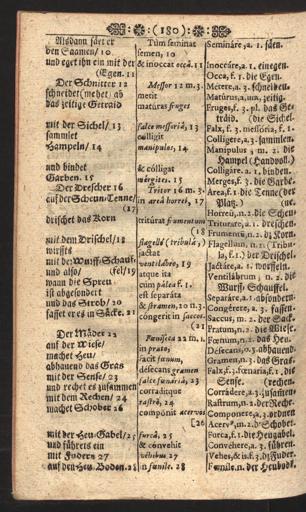 (180)
Alsdann säet er
den Saamen/ 10
und eget ihn ein mit der
(Egen. 11
Der Schnitter 12
schneidet (mehet) ab
das zeitige Getraid
mit der Sichel/ 13
sammlet
Hampeln/ 14
und bindet
Garben. 15
Der Drescher 16
auf der Scheun-Tenne/
(17
drischet das Korn
mit dem Drischel/ 18
wirffts
mit der Wurff-Schauf-
und also/ (fel/ 19
wann die Spreu
ist abgesondert
und das Stroh/ 20
fasset er es in Säcke. 21
Der Mäder 22
auf der Wiese/
machet Heu/
abhauend das Gras
mit der Sense/ 23
und rechet es zusammen
mit dem Rechen/ 24
machet Schober 26
mit der Heu-Gabel/ 25
und führets ein
mit Fudern 27
auf den Heu-Boden. 28
Tùm seminat
semen, 10
& inoccat occâ. 11
Messor 12 m. 3.
metit
matúras fruges
falce messoriâ, 13
colligit
manipulos, 14
& cólligat
mérgites. 15
Tritor 16 m. 3.
in areâ horrei, 17
tritúrat frumentum
flagello (tribulâ)
jactat
ventilábro, 19
atque ita
cùm pálea f. 1.
est separáta
& stramen, 20 n. 3.
cóngerit in saccos.
(21
Fœniseca 22 m. 1.
in prato,
facit fœnum,
désecans gramen
falce fœnáriâ, 23
corradítque
rastrô, 24
compónit acervos
[26
furcâ, 25
& cónvehit
véhibus 27
in fœnile. 28
Semináre, a. 1. säen.
Inoccáre, a. 1. einegen.
Occa, f. 1. die Egen.
Métere, a. 3. schneiden.
Matúrus, a, um, zeitig.
Fruges, f. 3. pl. das Ge-
träid. (die Sichel.
Falx, f. 3. messória, f. 1.
Collígere, a. 3. sammlen.
Manípulus 2 m. 2. die
Hampel (Handvoll.)
Colligáre, a. 1. binden.
Merges, f. 3. die Garbe.
Area, f. 1. die Tenne (der
Platz.)
Horreũ, n. 2. die Scheun-
Trituráre, a. 1. dreschen.
Frumentũ, n. 2. dz Korn.
Flagellum, n. 2. (Tribu-
la, f. 1.) der Drischel.
Jactáre, a. 1. worffeln.
Ventilábrum n. 2. die
Wurff-Schauffel.
Separáre, a. 1. absondern.
Congérere, a. 3. fassen.
Saccus, m. 2. der Sack.
Pratum, n. 2. die Wiese.
Fœnum, n. 2. das Heu.
Desecáre, a. 1. abhauend.
Gramen, n. 3. das Gras.
Falx, f. 3. fœnária, f. 1. die
Sense. (rechen.
Corrádere, a. 3. zusamen
Rastrum, n. 2. der Rechẽ.
Compónere, a. 3. ordnen
Acervꝰ, m. 2. dʒ Schober.
Furca, f. 1. die Heugabel.
Convéhere, a. 3. führen.
Vehes, & is. f. 3. dz Fuder.
Fœníle, n. der Heubodẽ.